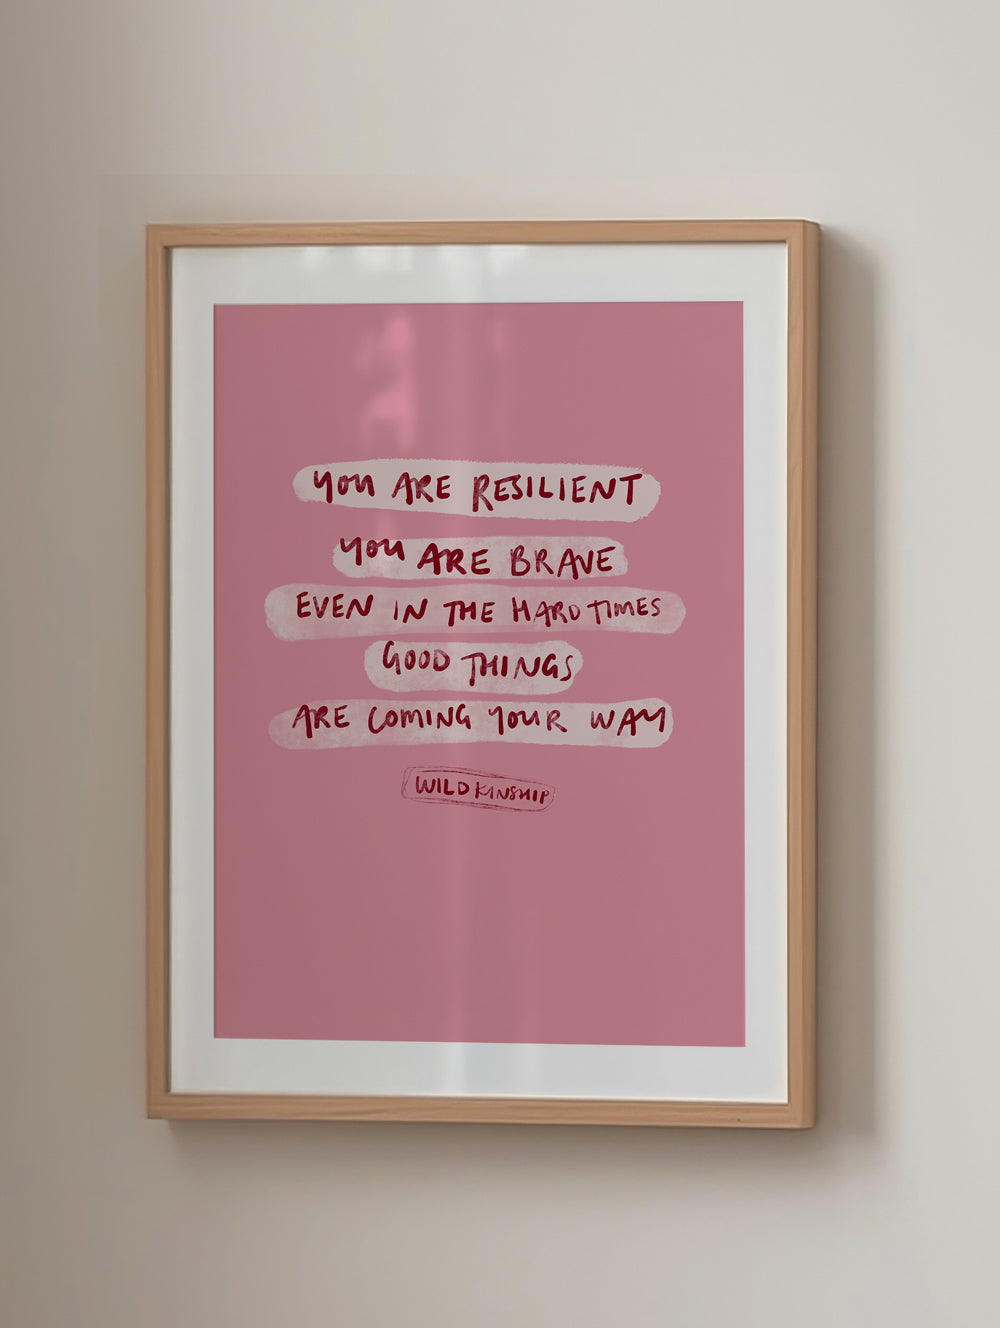 YOU ARE RESILIENT
YOU ARE BRAVE
EVEN IN THE HARD TIMES
GOOD THINGS
ARE COMING YOUR WAY
WILD KINSHIP